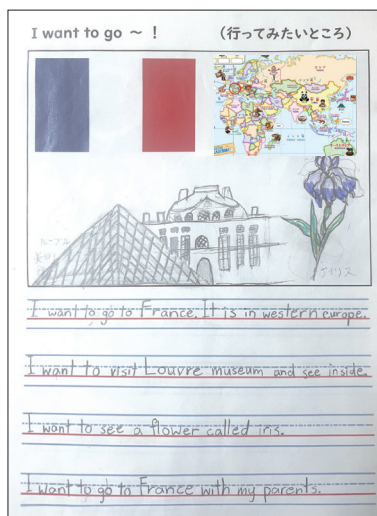 I want to go ～ !　（行ってみたいところ）
アイリス
I want to go to France. It is in western europe.
I want to visit Louvre museum and see inside.
I want to see a flower called iris.
I want to go to France with my parents.